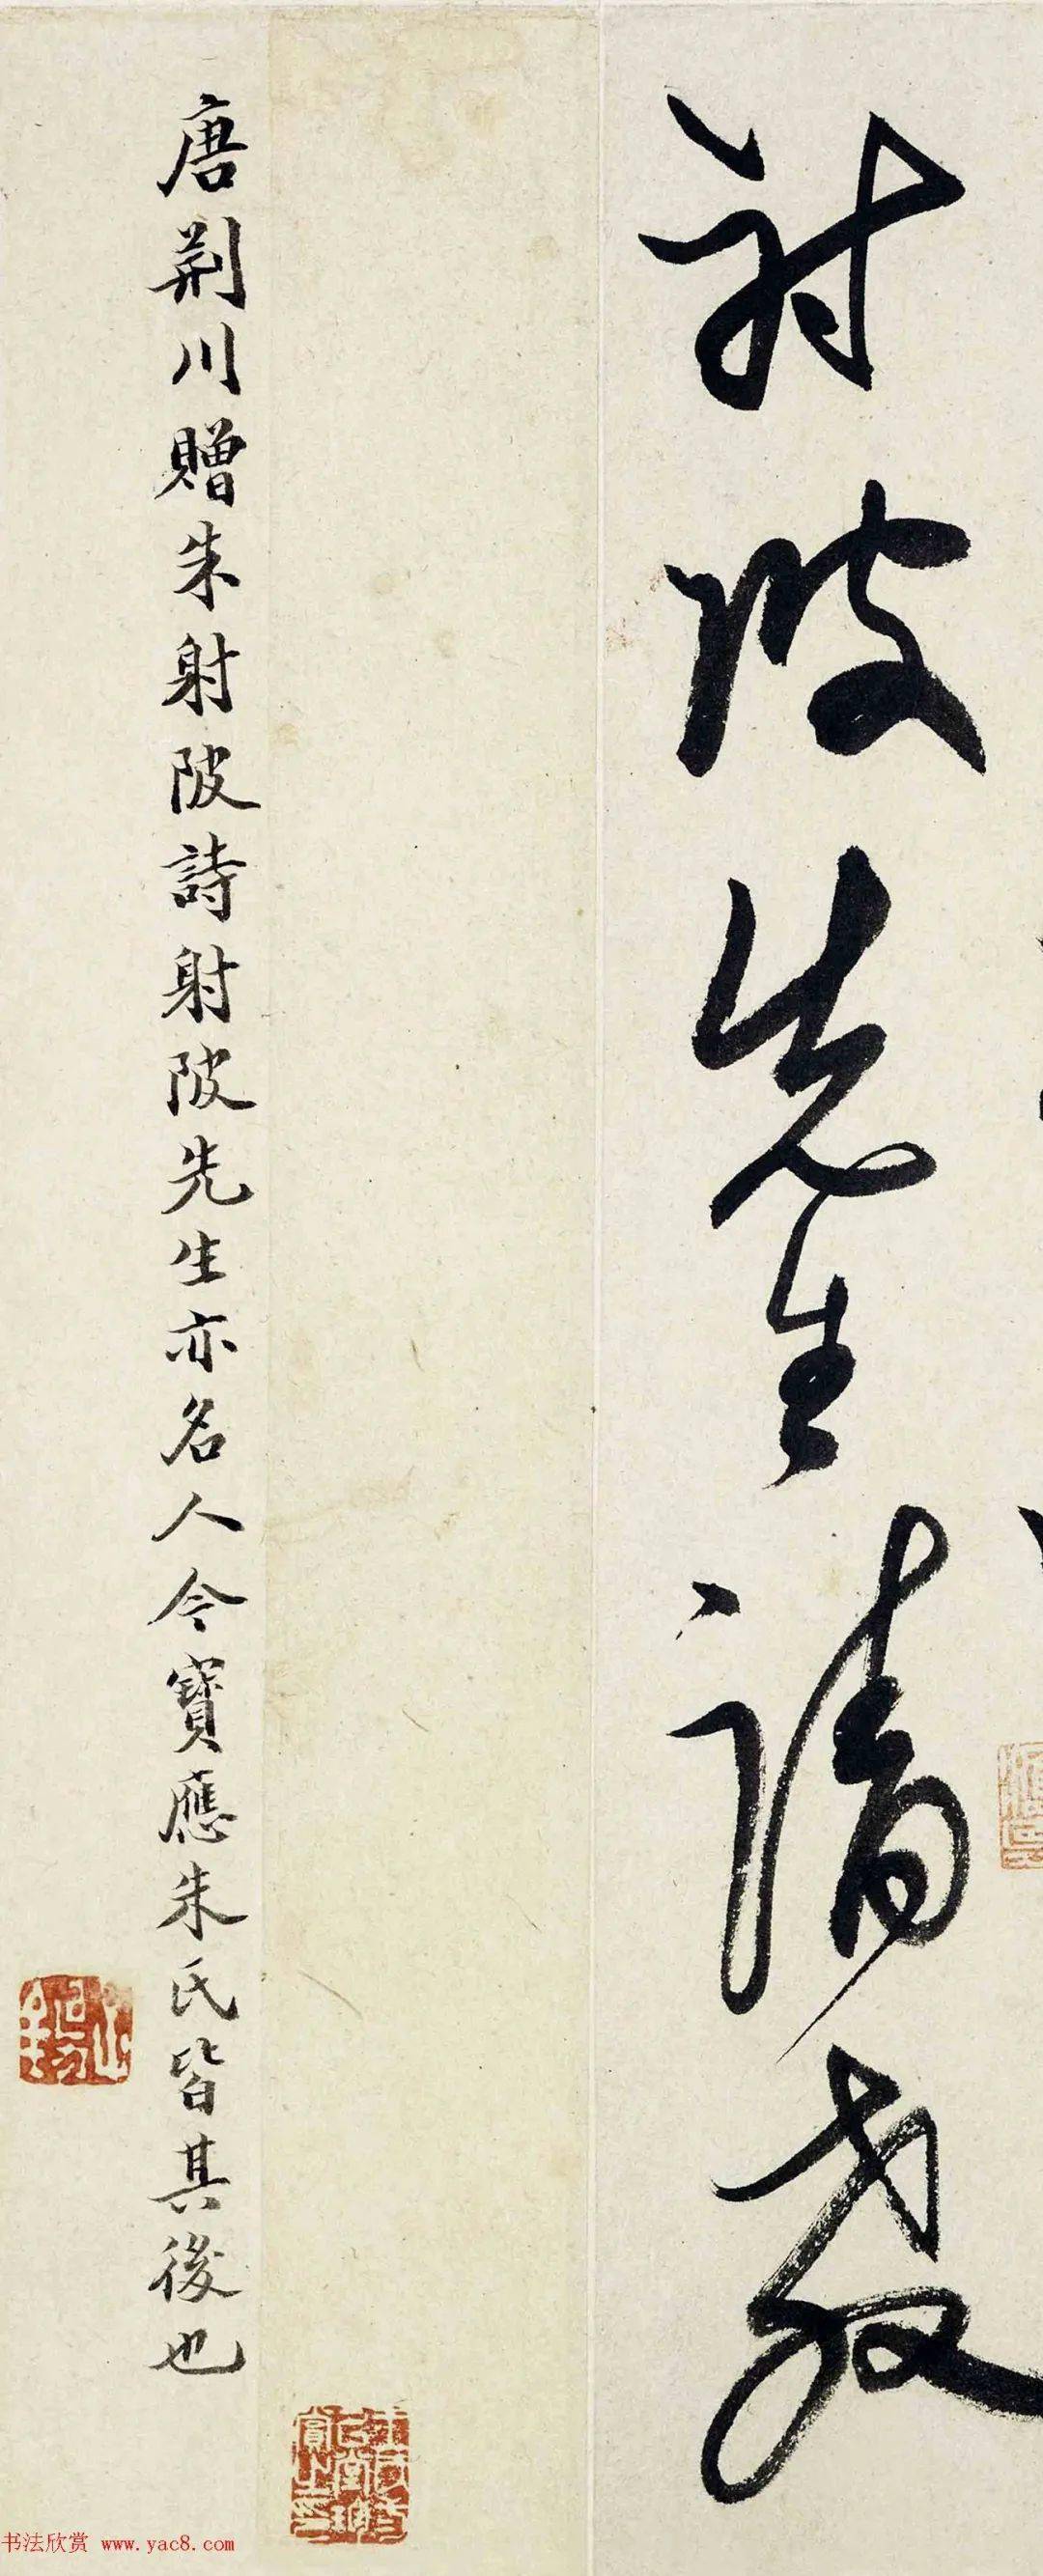 射陂先生請教
唐荆川贈朱射陂詩射陂先生亦名人今寶應朱氏皆其後也
书法欣赏 www.yac8.com